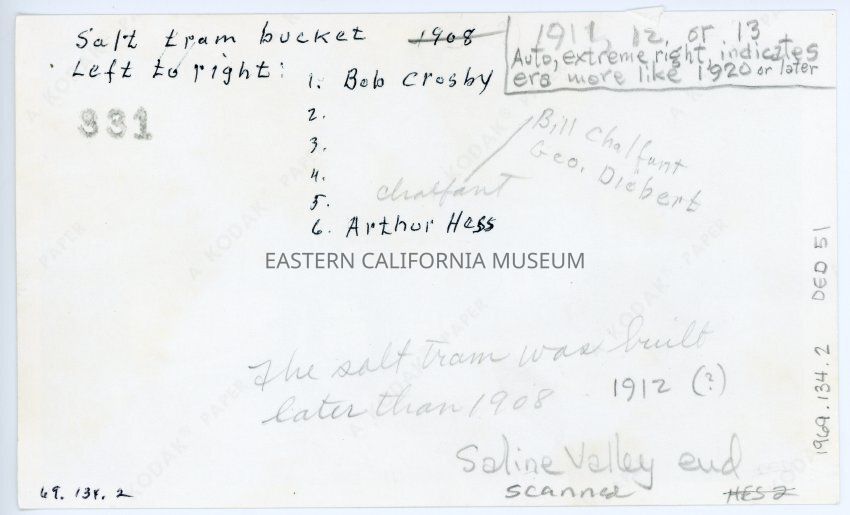 Salt tram bucket 1908
Left to right:
1. Bob Crosby
2.
3.
4.
5. chalfant
6. Arthur Hess
1911, 12, or 13
Auto, extreme right, indicates
era more like 1920 or later
331
Bill Chalfant
Geo. Diebert
EASTERN CALIFORNIA MUSEUM
The salt tram was built
later than 1908 1912 (?)
Saline Valley end
scanned
HES 2
69.134.2
1969.134.2 DED 51
A KODAK PAPER